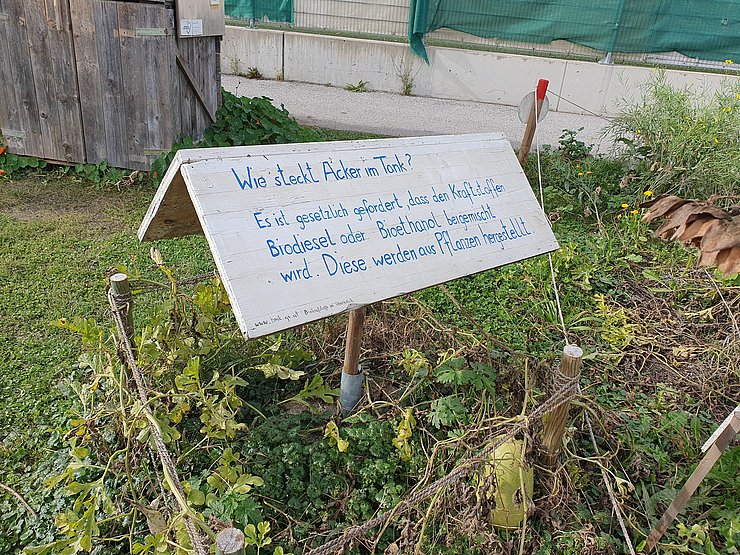 Wie steckt Acker im Tank?
Es ist gesetzlich gefordert, dass den Kraftstoffen
Biodiesel oder Bioethanol beigemischt
wird. Diese werden aus Pflanzen hergestellt.